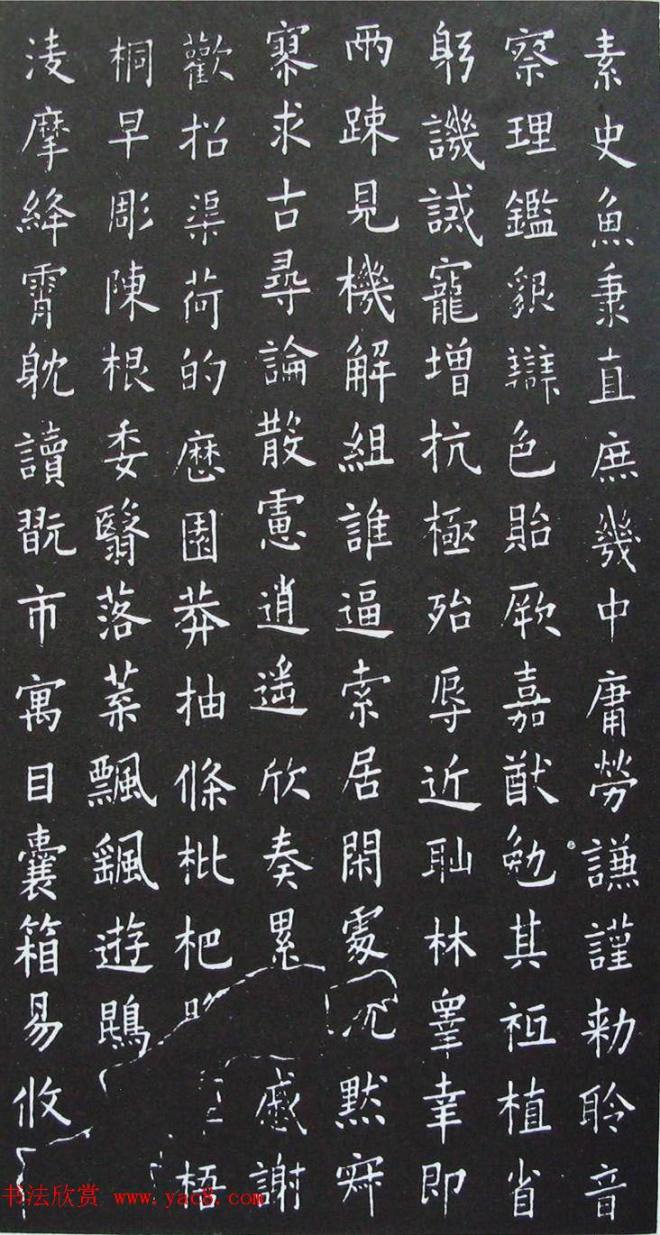 素史魚秉直庶幾中庸勞謙謹勅聆音
察理鑑貌辯色貽厥嘉猷勉其祗植省
躬譏誡寵增抗極殆辱近恥林睾幸即
兩疎見機解組誰逼索居閑處沉默寂
寮求古尋論散慮逍遙欣奏累感謝
歡招渠荷的歷園莽抽條枇杷梧
桐早彫陳根委翳落葉飄颻遊鵾
淩摩絳霄耽讀翫市寓目囊箱易攸
书法欣赏 www.yac8.com